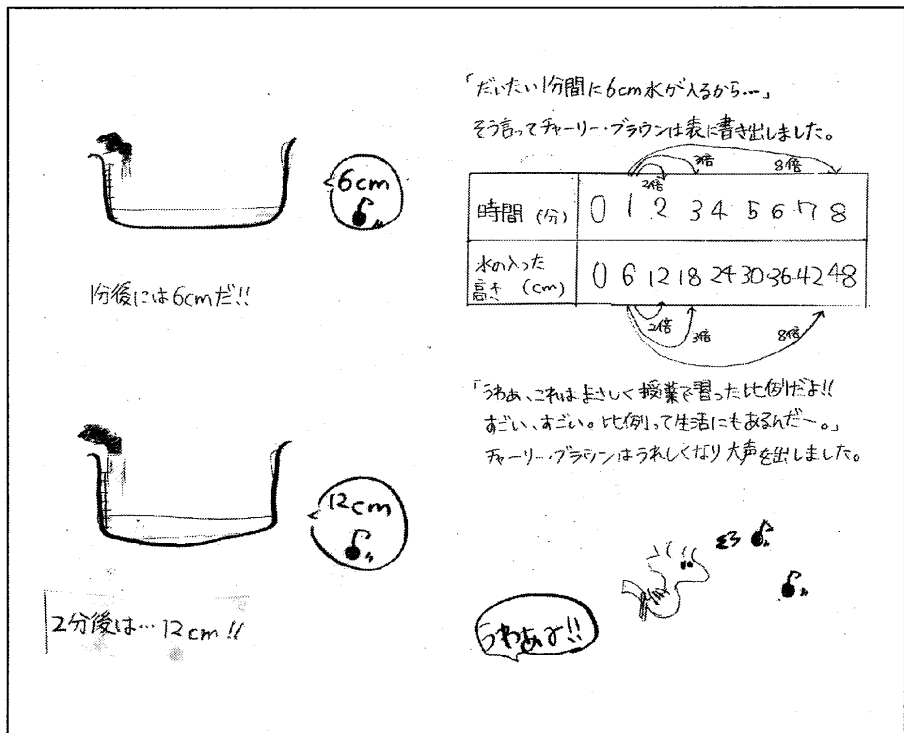 6cm
1分後には6cmだ!!
12cm
2分後は…12cm!!
「だいたい1分間に6cm水が入るから…」
そう言ってチャーリー・ブラウンは表に書き出しました。
2倍 3倍 8倍
時間(分) 0 1 2 3 4 5 6 7 8
水の入った
高さ(cm) 0 6 12 18 24 30 36 42 48
2倍 3倍 8倍
「うわぁ、これはまさしく授業で習った比例だよ!!
すごい、すごい。比例って生活にもあるんだー。」
チャーリー・ブラウンはうれしくなり大声を出しました。
うわぁ!!